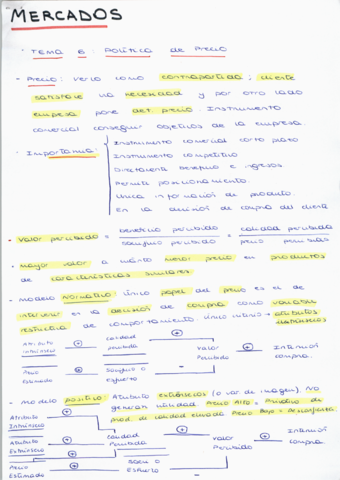 MERCADOS
- TEMA 6: POLÍTICA de PRECIO
- Precio: verlo como contrapartida; cliente
satisface una necesidad y por otro lado
empresa pone det. precio. Instrumento
comercial conseguir objetivos de la empresa
- Importancia:
Instrumento comercial corto plazo
Instrumento competitivo
Directamente beneficio e ingresos
Permite posicionamiento.
Única información de producto
En la decisión de compra del cliente
• Valor percibido = beneficio percibido = calidad percibida
sacrificio percibido precio percibido
• mayor valor a menor precio en productos
de características similares.
- modelo normativo: único papel del precio es el de
intervenir en la decisión de compra como variable
restrictiva de comportamiento. único interés = atributos
intrínsecos
Atributo
intrínseco
+
calidad
percibida
+
Valor
Percibido
+
Intención
compra.
Precio
Estimado
+
Sacrificio o
Esfuerzo
-
- modelo positivo: Atributo extrínseco (o var. de imagen). No
generan utilidad. Precio Alto = Indicativo de
prod. de calidad elevada. Precio Bajo =
Atributo
Intrínseco
+
Atributo
Extrínseco
+
calidad
Percibida
+
valor
Percibido
+
Intención
compra.
Precio
Estimado
+
Sacrif. o
Esfuerzo
-